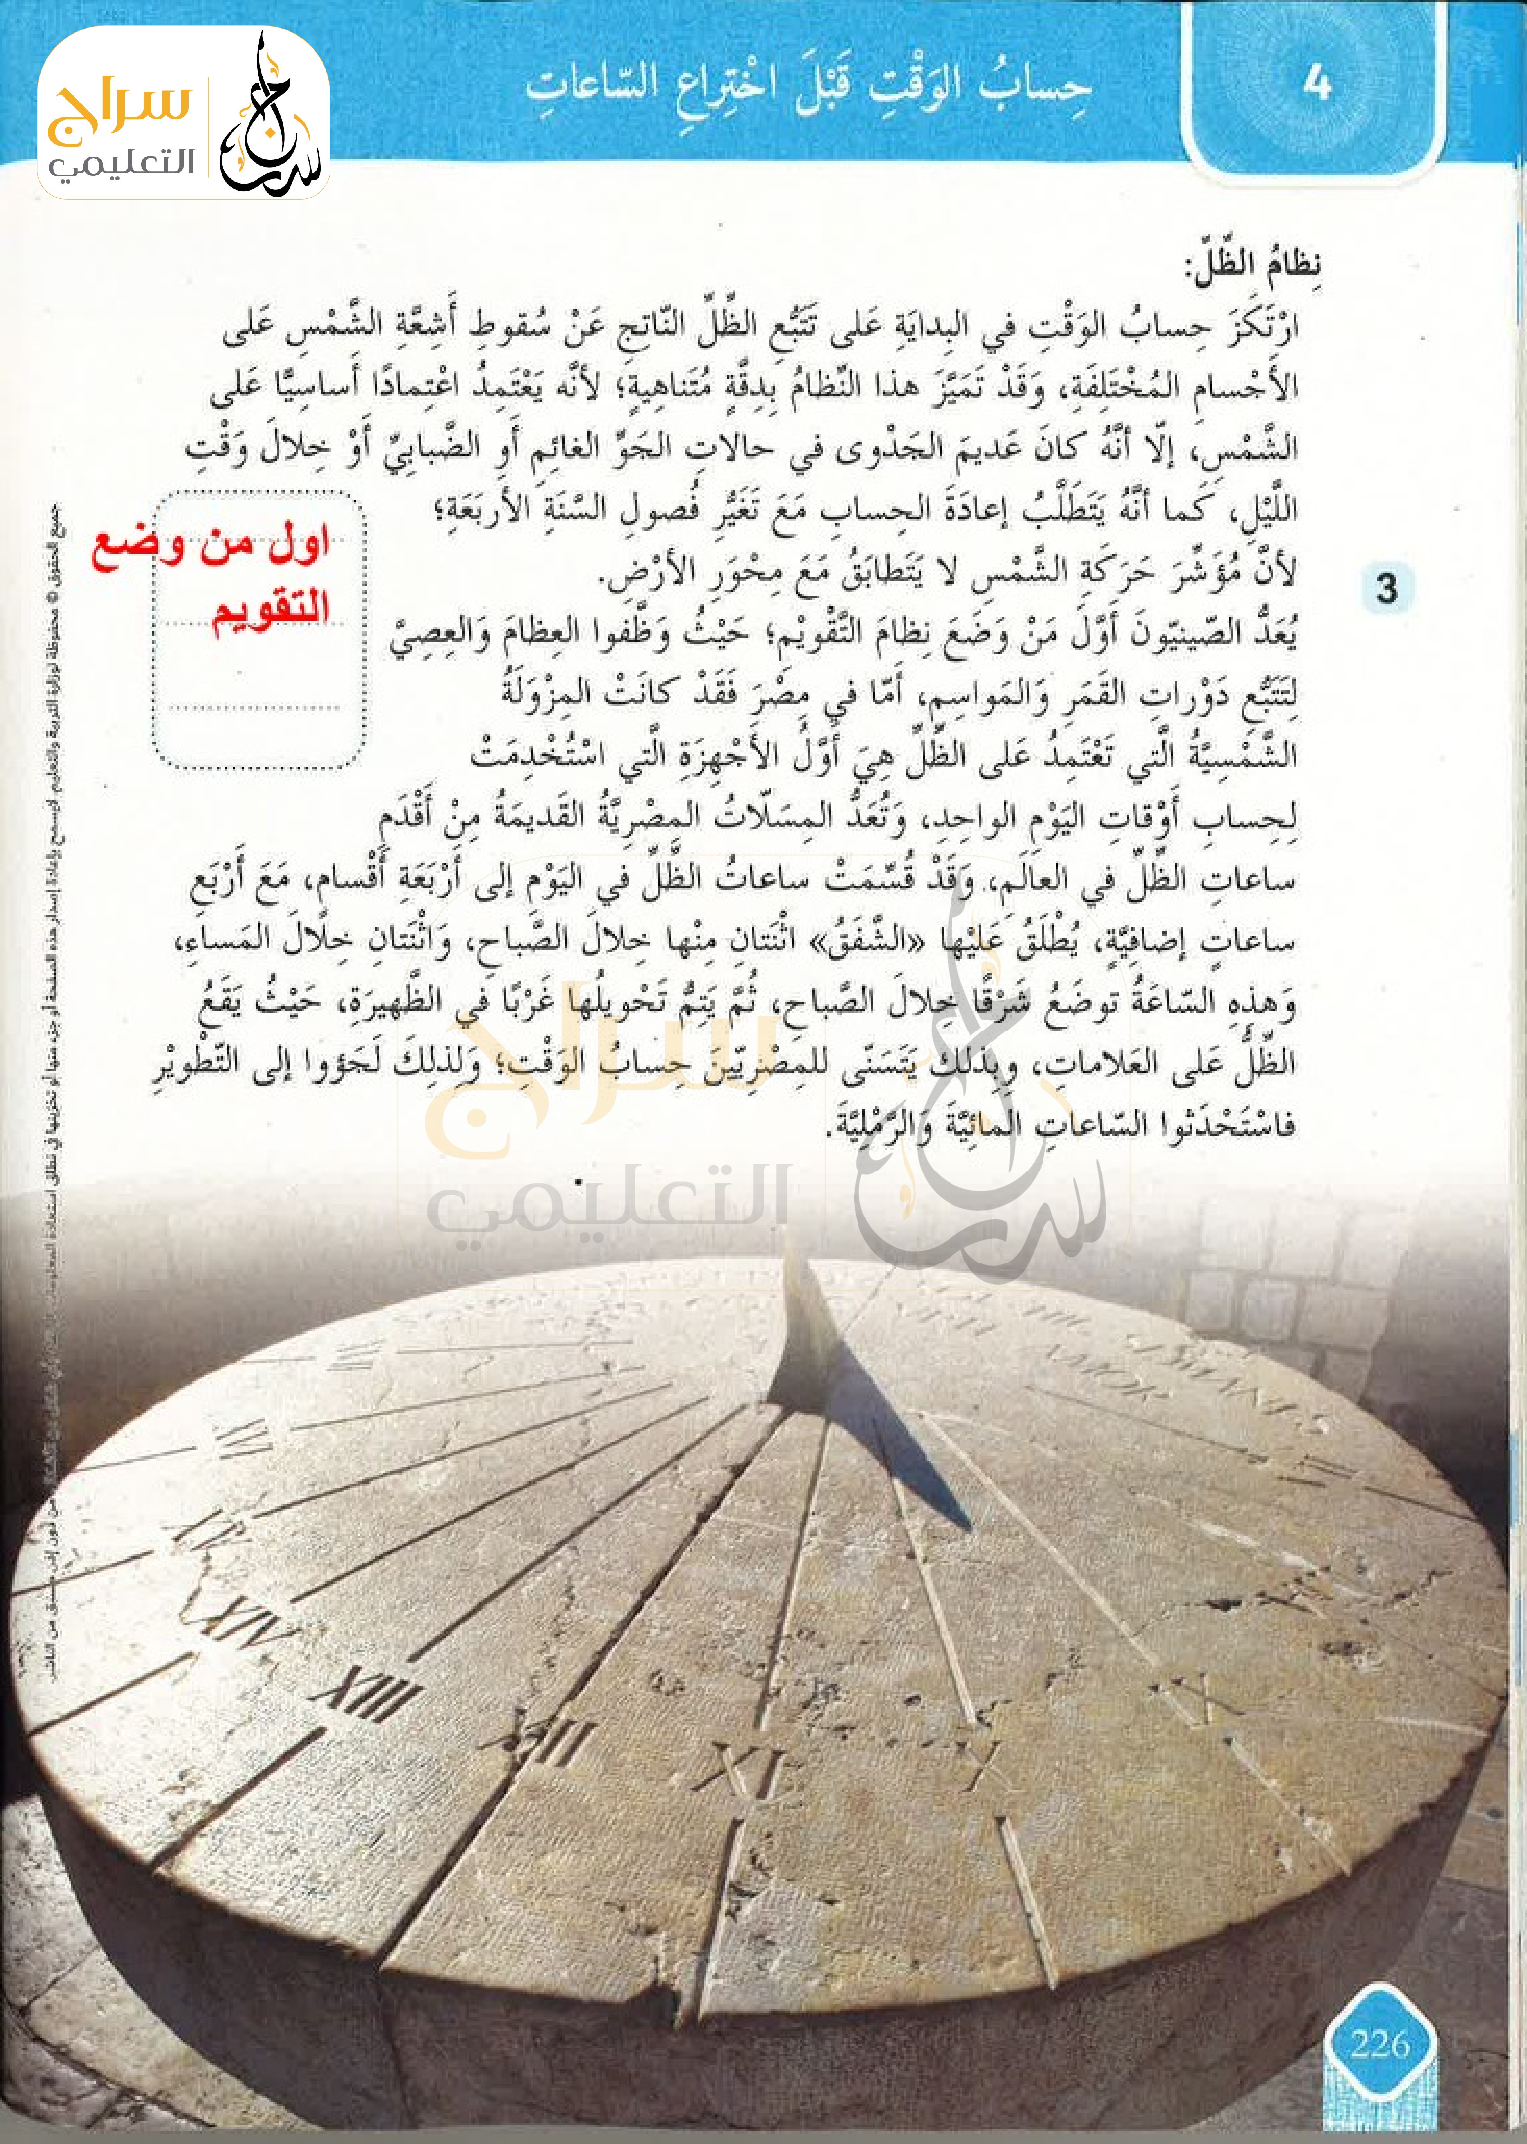 سراج
التعليمي
حِسابُ الوَقْتِ قَبْلَ اخْتِراعِ السّاعاتِ
4
نِظامُ الظِّلِّ:
ارْتَكَزَ حِسابُ الوَقْتِ في البِدايَةِ عَلى تَتَبُّعِ الظِّلِّ النّاتِجِ عَنْ سُقوطِ أَشِعَّةِ الشَّمْسِ عَلى
الأَجْسامِ المُخْتَلِفَةِ، وَقَدْ تَمَيَّزَ هذا النِّظامُ بِدِقَّةٍ مُتَناهِيةٍ؛ لأنَّه يَعْتَمِدُ اعْتِمادًا أَساسِيًّا عَلى
الشَّمْسِ، إلّا أنَّهُ كانَ عَديمَ الجَدْوى في حالاتِ الجَوِّ الغائِمِ أَوِ الضَّبابِيِّ أَوْ خِلالَ وَقْتِ
اللَّيْلِ، كَما أنَّهُ يَتَطَلَّبُ إعادَةَ الحِسابِ مَعَ تَغَيُّرِ فُصولِ السَّنَةِ الأربَعَةِ؛
لأنَّ مُؤَشِّرَ حَرَكَةِ الشَّمْسِ لا يَتَطابَقُ مَعَ مِحْوَرِ الأرْضِ.
3
اول من وضع
التقويم
يُعَدُّ الصّينيّونَ أَوَّلَ مَنْ وَضَعَ نِظامَ التَّقْويْمِ؛ حَيْثُ وَظَّفوا العِظامَ وَالعِصِيَّ
لِتَتَبُّعِ دَوْراتِ القَمَرِ وَالمَواسِمِ، أَمّا في مِصْرَ فَقَدْ كانَتْ المِزْوَلَةُ
الشَّمْسِيَّةُ الَّتي تَعْتَمِدُ عَلى الظِّلِّ هِيَ أَوَّلُ الأَجْهِزَةِ الَّتي اسْتُخْدِمَتْ
لِحِسابِ أَوْقاتِ اليَوْمِ الواحِدِ، وَتُعَدُّ المِسَلّاتُ المِصْرِيَّةُ القَديمَةُ مِنْ أَقْدَمِ
ساعاتِ الظِّلِّ في العالَمِ، وَقَدْ قُسِّمَتْ ساعاتُ الظِّلِّ في اليَوْمِ إلى أَرْبَعَةِ أَقْسامٍ، مَعَ أَرْبَعِ
ساعاتٍ إضافِيَّةٍ، يُطْلَقُ عَلَيْها «الشَّفَقُ» اثْنَتانِ مِنْها خِلالَ الصَّباحِ، وَاثْنَتانِ خِلالَ المَساءِ،
وَهذِهِ السّاعَةُ توضَعُ شَرْقًا خِلالَ الصَّباحِ، ثُمَّ يَتِمُّ تَحْويلُها غَرْبًا في الظَّهيرَةِ، حَيْثُ يَقَعُ
الظِّلُّ عَلى العَلاماتِ، وَبِذلكَ يَتَسَنّى للمِصْرِيّينَ حِسابُ الوَقْتِ؛ وَلِذلِكَ لَجَؤوا إلى التَّطْويْرِ
فاسْتَحْدَثوا السّاعاتِ المائِيَّةَ وَالرَّمْلِيَّةَ.
سراج
التعليمي
XVI
XV
XIV
XIII
XII
XI
X
IX
226